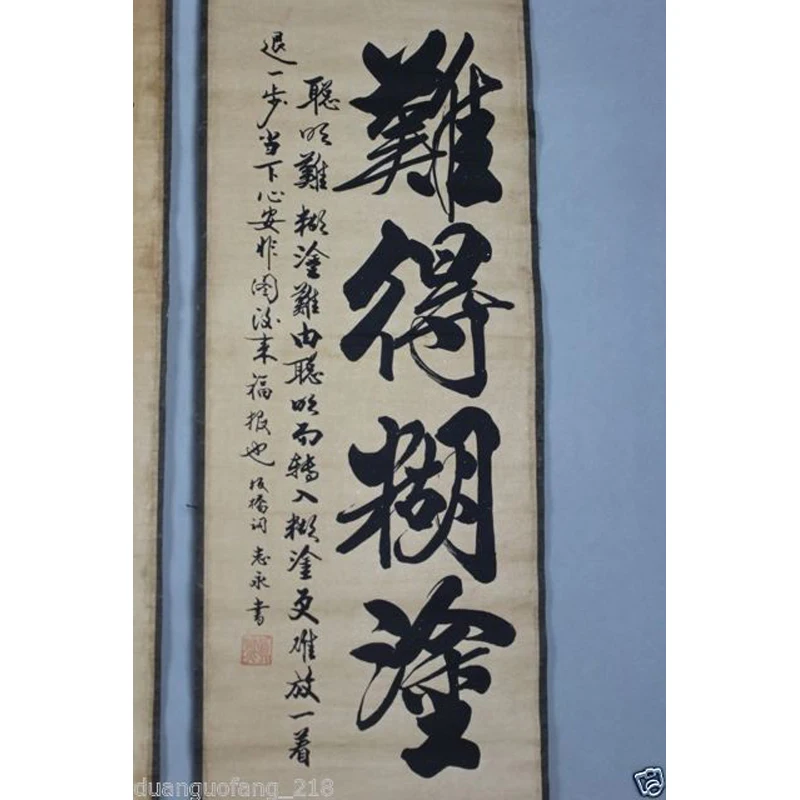 難得糊塗
聪明難糊塗難由聪明而轉入糊塗更难放一着
退一步当下心安非图后来福报也
板橋词志永書
duanguofang_218